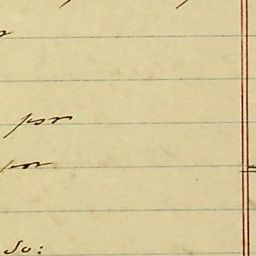 por
por
So: